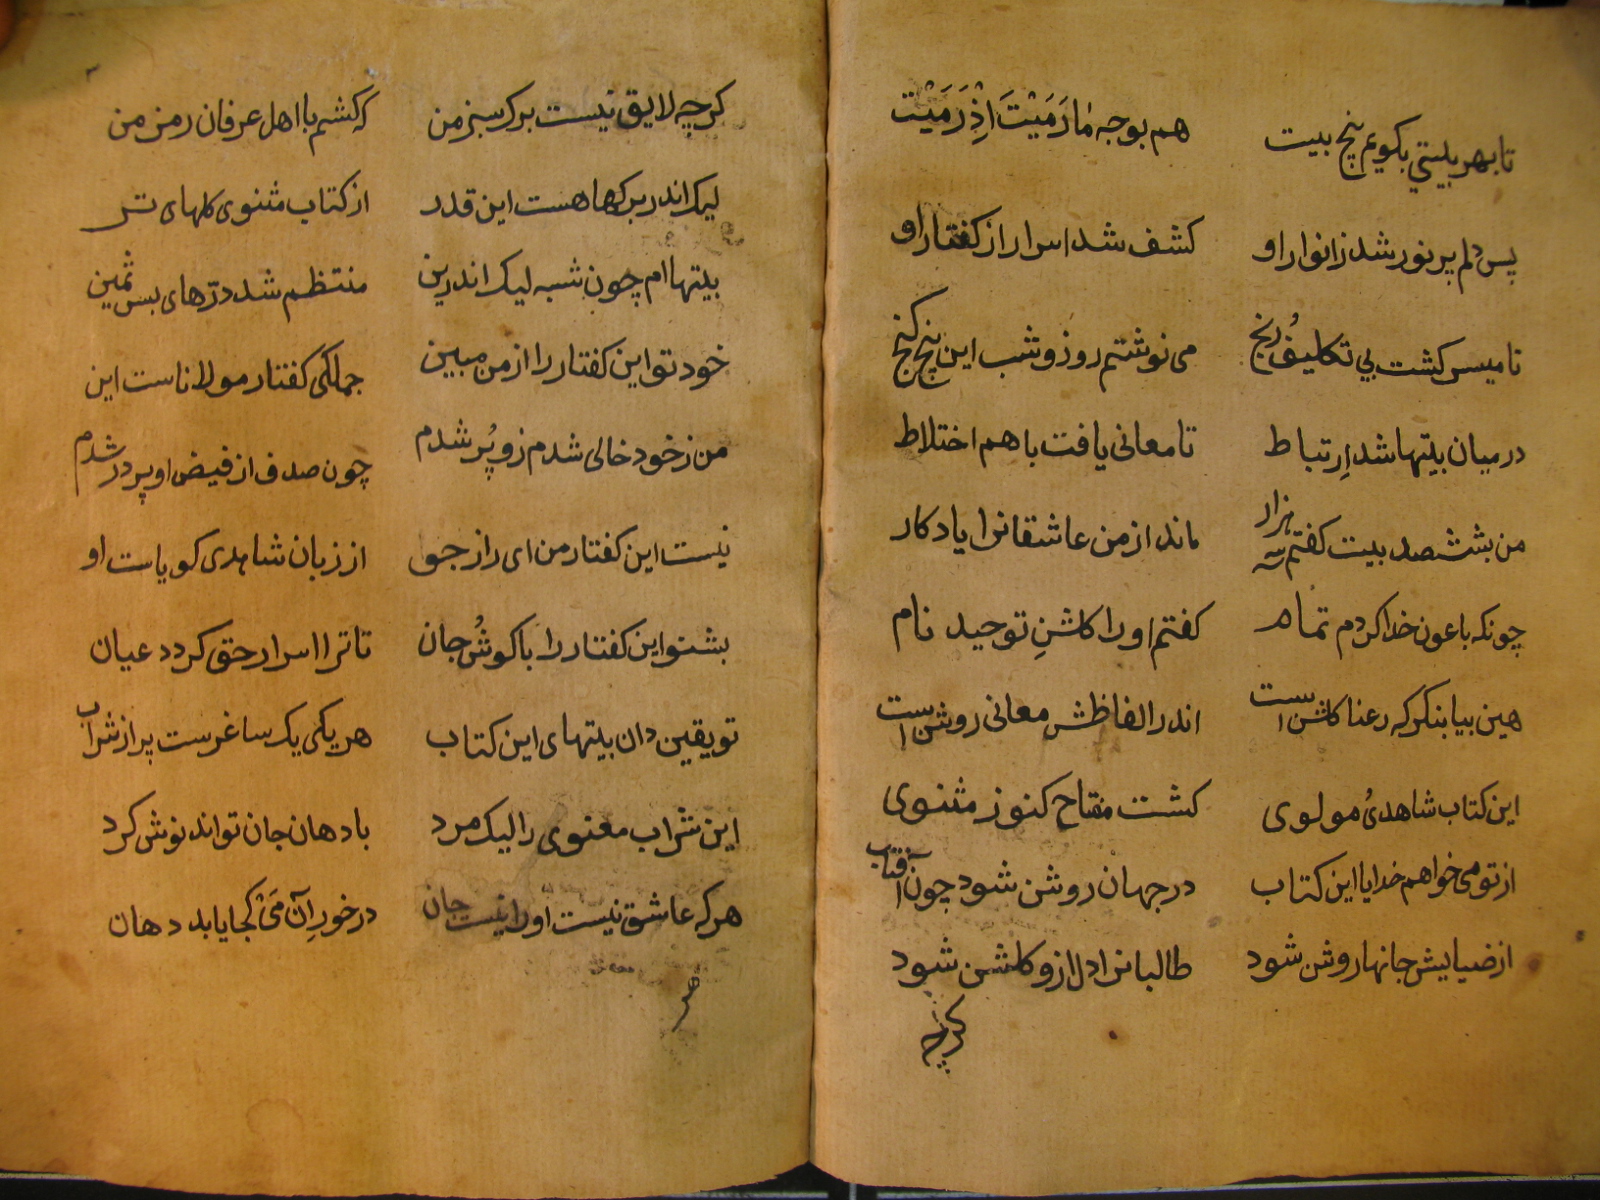 تا بهر بیتي بکویم پنج بیت هم بوجه مٰا رَمَیْتَ اِذْ رَمَیْت
پس دلم پر نور شد ز انوار او کشف شد اسرار از کفتار او
تا میسر کشت بي تکلیف و رنج می نوشتم روز و شب این پنج کنج
در میان بیتها شد اِرتباط تا معانی یافت باهم اختلاط
من بششصد بیت کفتم سه هزار ماند از من عاشقانرا یادکار
چونکه با عون خدا کردم تمام کفتم او را کلشنِ توحید نام
هین بیا بنکر که رعنا کلشن است اندر الفاظش معانی روشن است
این کتاب شاهدیُ مولوی کشت مفتاح کنوز مثنوی
از تو می خواهم خدایا این کتاب در جهان روشن شود چون آفتاب
از ضیایش جانها روشن شود طالبانرا دل ازو کلشن شود
کرچه
کرچه لایق نیست برک سبز من که کشم با اهل عرفان رمز من
لیک اندر برکها هست این قدر از کتاب مثنوی کلهای تر
بیتها ام چون شبه لیک اندرین منتظم شد درّهای بس ثمین
خود تو این کفتار را از من مبین جملکی کفتار مولاناست این
من ز خود خالی شدم زو پُر شدم چون صدف از فیض او پر در شدم
نیست این کفتار من ای راز جو از زبان شاهدی کویاست او
بشنو این کفتار را با کوشُ جان تا ترا اسرار حق کردد عیان
تو یقین دان بیتهای این کتاب هر یکی یک ساغرست پر از شراب
این شراب معنوی را لیک مرد با دهان جان تواند نوش کرد
هر که عاشق نیست او را نیست جان در خورِ آن مَی کجا یابد دهان